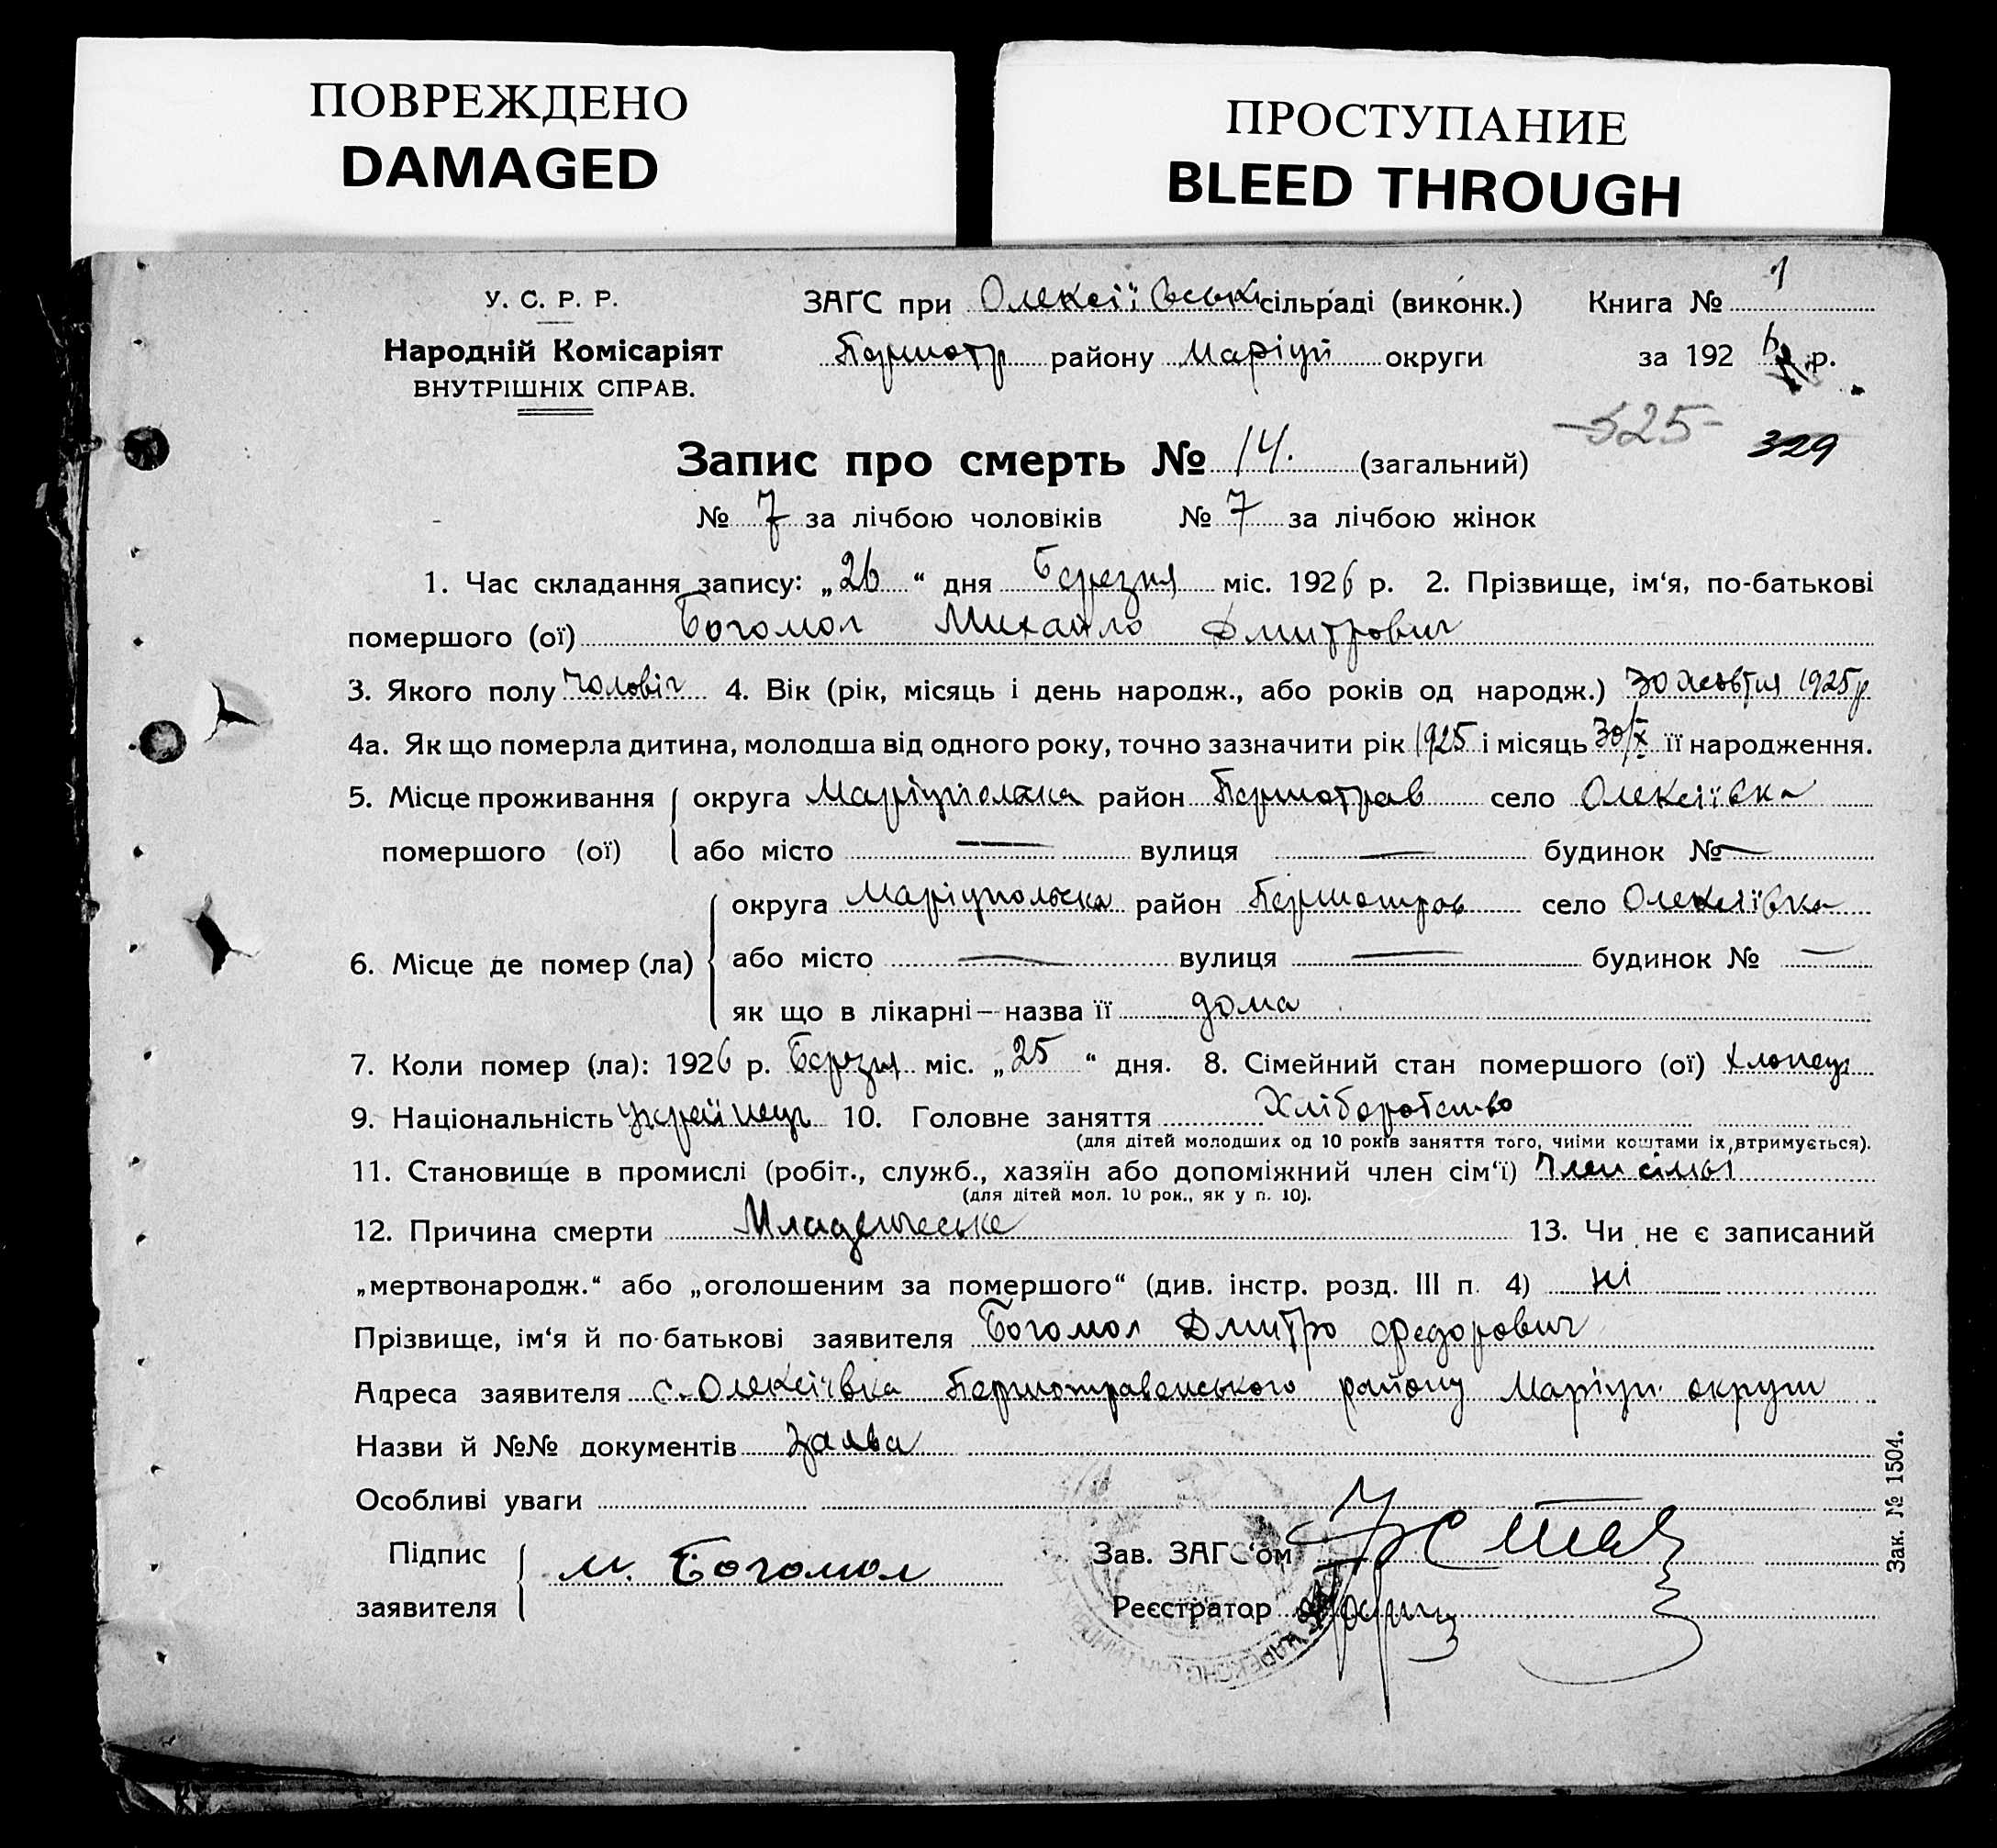 ПОВРЕЖДЕНО
DAMAGED
ПРОСТУПАНИЕ
BLEED THROUGH
У. С. Р. Р.
Народній Комісаріят
ВНУТРІШНІХ СПРАВ.
ЗАГС при Олексіївські сільраді (виконк.)
Першотр району Маріуп округи
Книга № 1
за 192 6 р.
-325- 329
Запис про смерть № 14. (загальний)
№ 7 за лічбою чоловіків № 7 за лічбою жінок
1. Час складання запису: „26“ дня Березня міс. 1926 р. 2. Прізвище, ім‘я, по-батькові
помершого (ої) Богомол Михайло Дмитрович
3. Якого полу чоловіч 4. Вік (рік, місяць і день народж., або років од народж.) 30 жовтня 1925 р
4а. Як що померла дитина, молодша від одного року, точно зазначити рік 1925 і місяць 30/X її народження.
5. Місце проживання округа Маріупільська район Першотрав село Олексіївка
помершого (ої) або місто — вулиця — будинок № —
округа Маріупольська район Першотрав село Олексіївка
6. Місце де помер (ла) або місто — вулиця — будинок № —
як що в лікарні — назва її дома
7. Коли помер (ла): 1926 р. Березня міс. „25“ дня. 8. Сімейний стан помершого (ої) хлопець
9. Національність Українець 10. Головне заняття Хліборобство
(для дітей молодших од 10 років заняття того, чиїми коштами їх втримується).
11. Становище в промислі (робіт., служб., хазяїн або допоміжний член сім‘ї) Член сімьї
(для дітей мол. 10 рок., як у п. 10).
12. Причина смерти Младенческе 13. Чи не є записаний
„мертвонародж.“ або „оголошеним за помершого“ (див. інстр. розд. III п. 4) ні
Прізвище, ім‘я й по-батькові заявителя Богомол Дмитро Федорович
Адреса заявителя с. Олексіївка Першотравенського району Маріуп. округи
Назви й №№ документів заява
Особливі уваги
Підпис заявителя М. Богомол
Зав. ЗАГС‘ом
Реєстратор
Зак. № 1504.